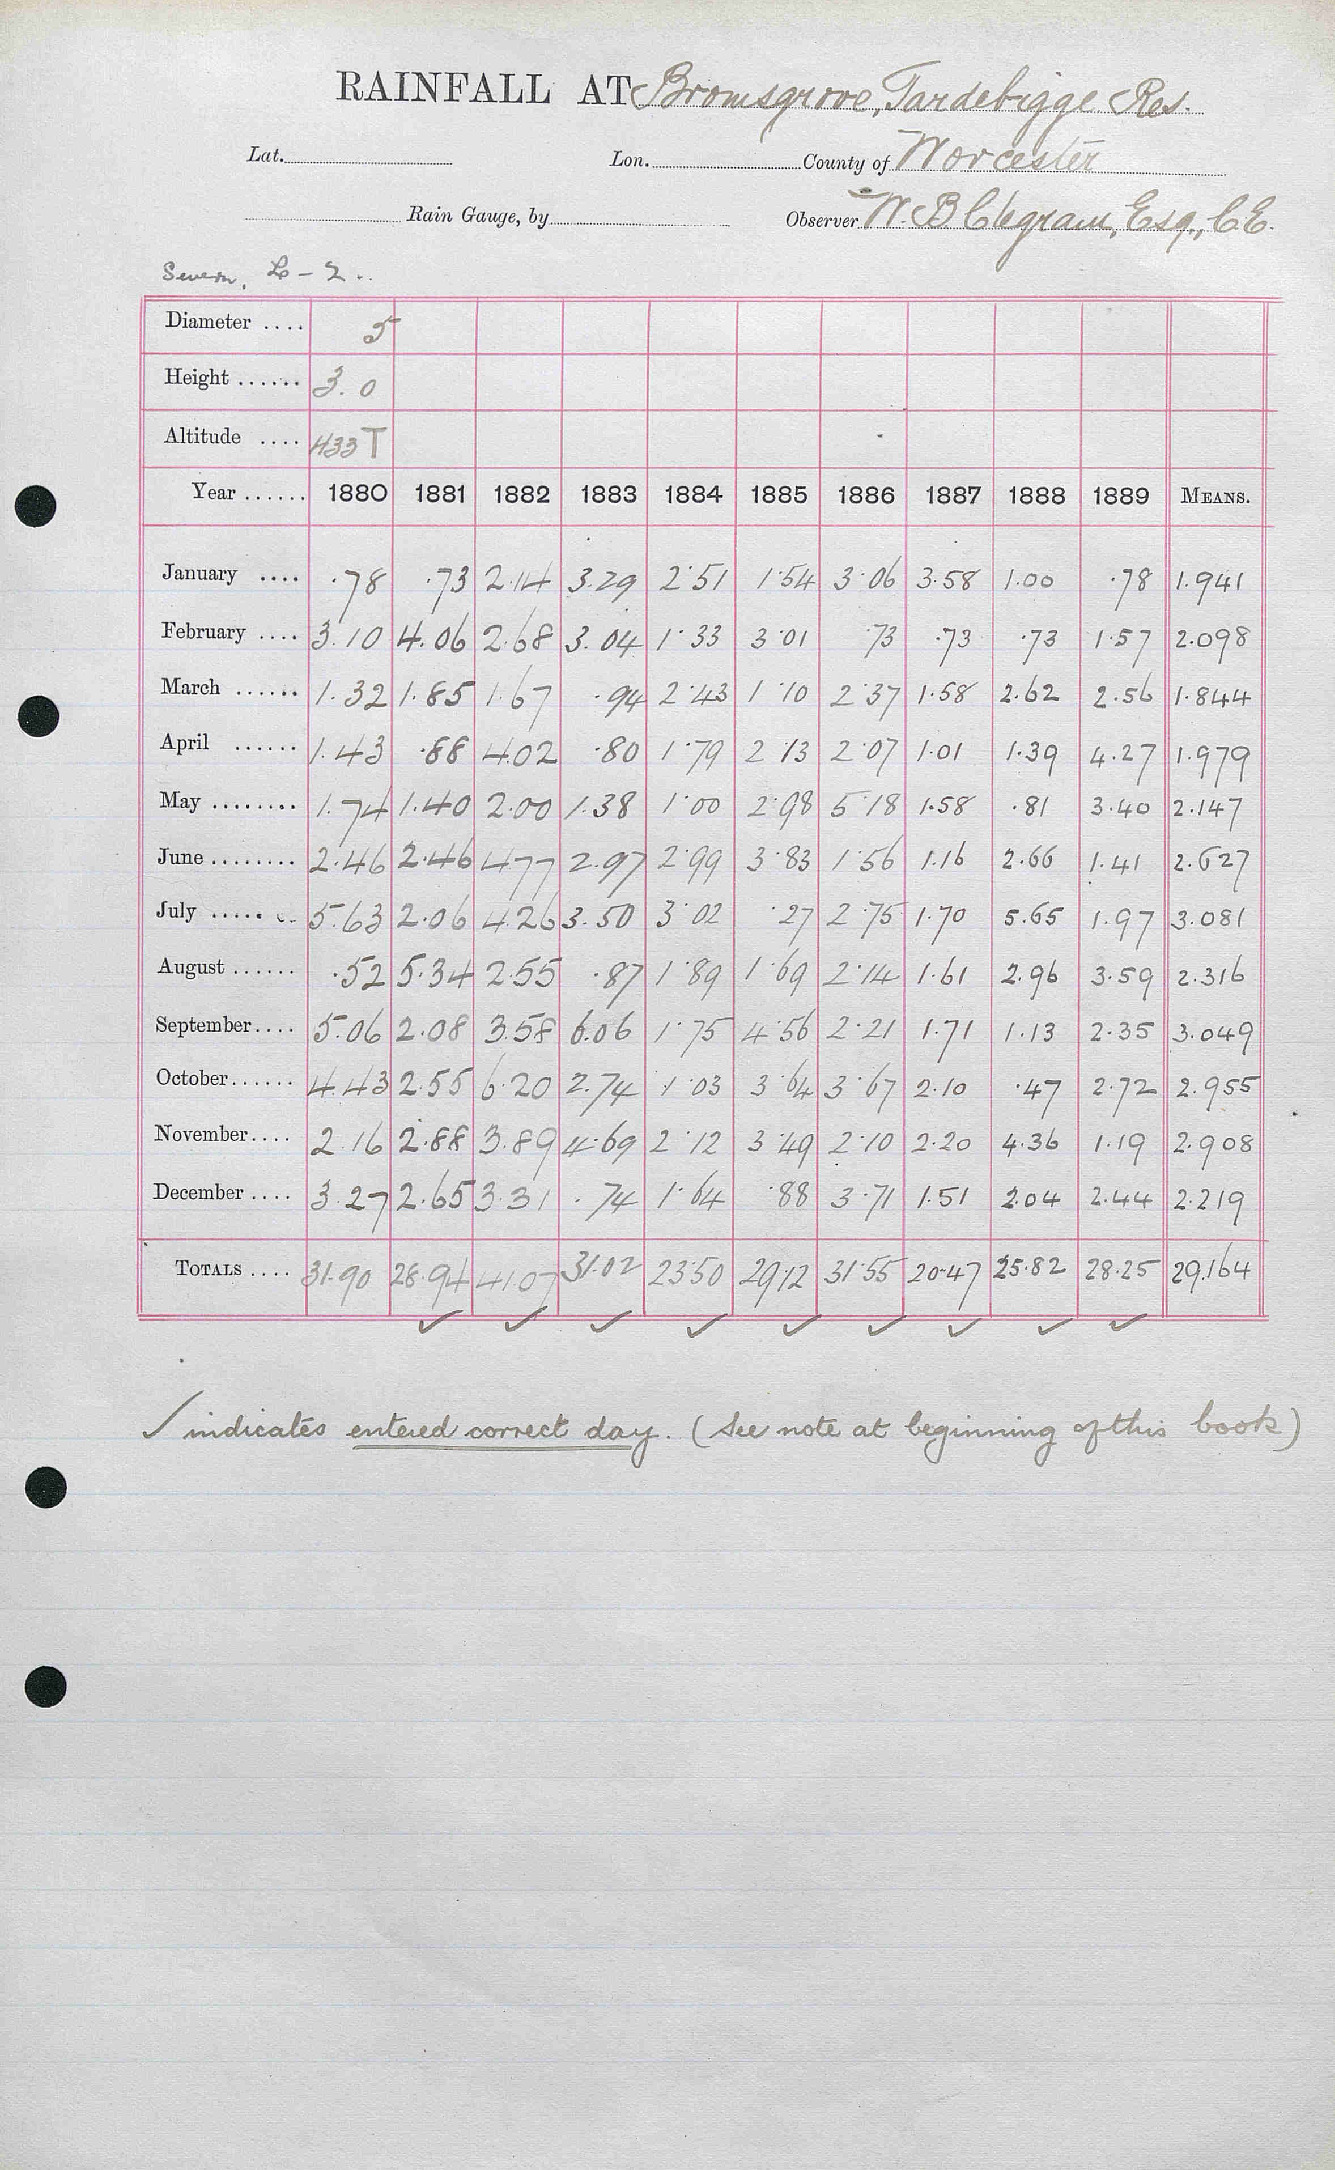 RAINFALL AT Bromsgrove, Tardebigge Res.
Lat. Lon. County of Worcester
Rain Gauge, by Observer W. B. Clegram, Esq., C.E.
Severn, L - 2..
Diameter .... 5
Height ...... 3.0
Altitude .... 433 T
Year ...... 1880 1881 1882 1883 1884 1885 1886 1887 1888 1889 MEANS.
January .... .78 .73 2.14 3.29 2.51 1.54 3.06 3.58 1.00 .78 1.941
February .... 3.10 4.06 2.68 3.04 1.33 3.01 .73 .73 .73 1.57 2.098
March ...... 1.32 1.85 1.67 .94 2.43 1.10 2.37 1.58 2.62 2.56 1.844
April ...... 1.43 .88 4.02 .80 1.79 2.13 2.07 1.01 1.39 4.27 1.979
May ........ 1.74 1.40 2.00 1.38 1.00 2.98 5.18 1.58 .81 3.40 2.147
June ........ 2.46 2.46 4.77 2.97 2.99 3.83 1.56 1.16 2.66 1.41 2.627
July ........ 5.63 2.06 4.26 3.50 3.02 .27 2.75 1.70 5.65 1.97 3.081
August ...... .52 5.34 2.55 .87 1.89 1.69 2.14 1.61 2.96 3.59 2.316
September.... 5.06 2.08 3.58 6.06 1.75 4.56 2.21 1.71 1.13 2.35 3.049
October...... 4.43 2.55 6.20 2.74 1.03 3.64 3.67 2.10 .47 2.72 2.955
November.... 2.16 2.88 3.89 4.69 2.12 3.49 2.10 2.20 4.36 1.19 2.908
December .... 3.27 2.65 3.31 .74 1.64 .88 3.71 1.51 2.04 2.44 2.219
TOTALS .... 31.90 28.94 41.07 31.02 23.50 29.12 31.55 20.47 25.82 28.25 29.164
✓ ✓ ✓ ✓ ✓ ✓ ✓ ✓ ✓
✓ indicates entered correct day. (See note at beginning of this book)